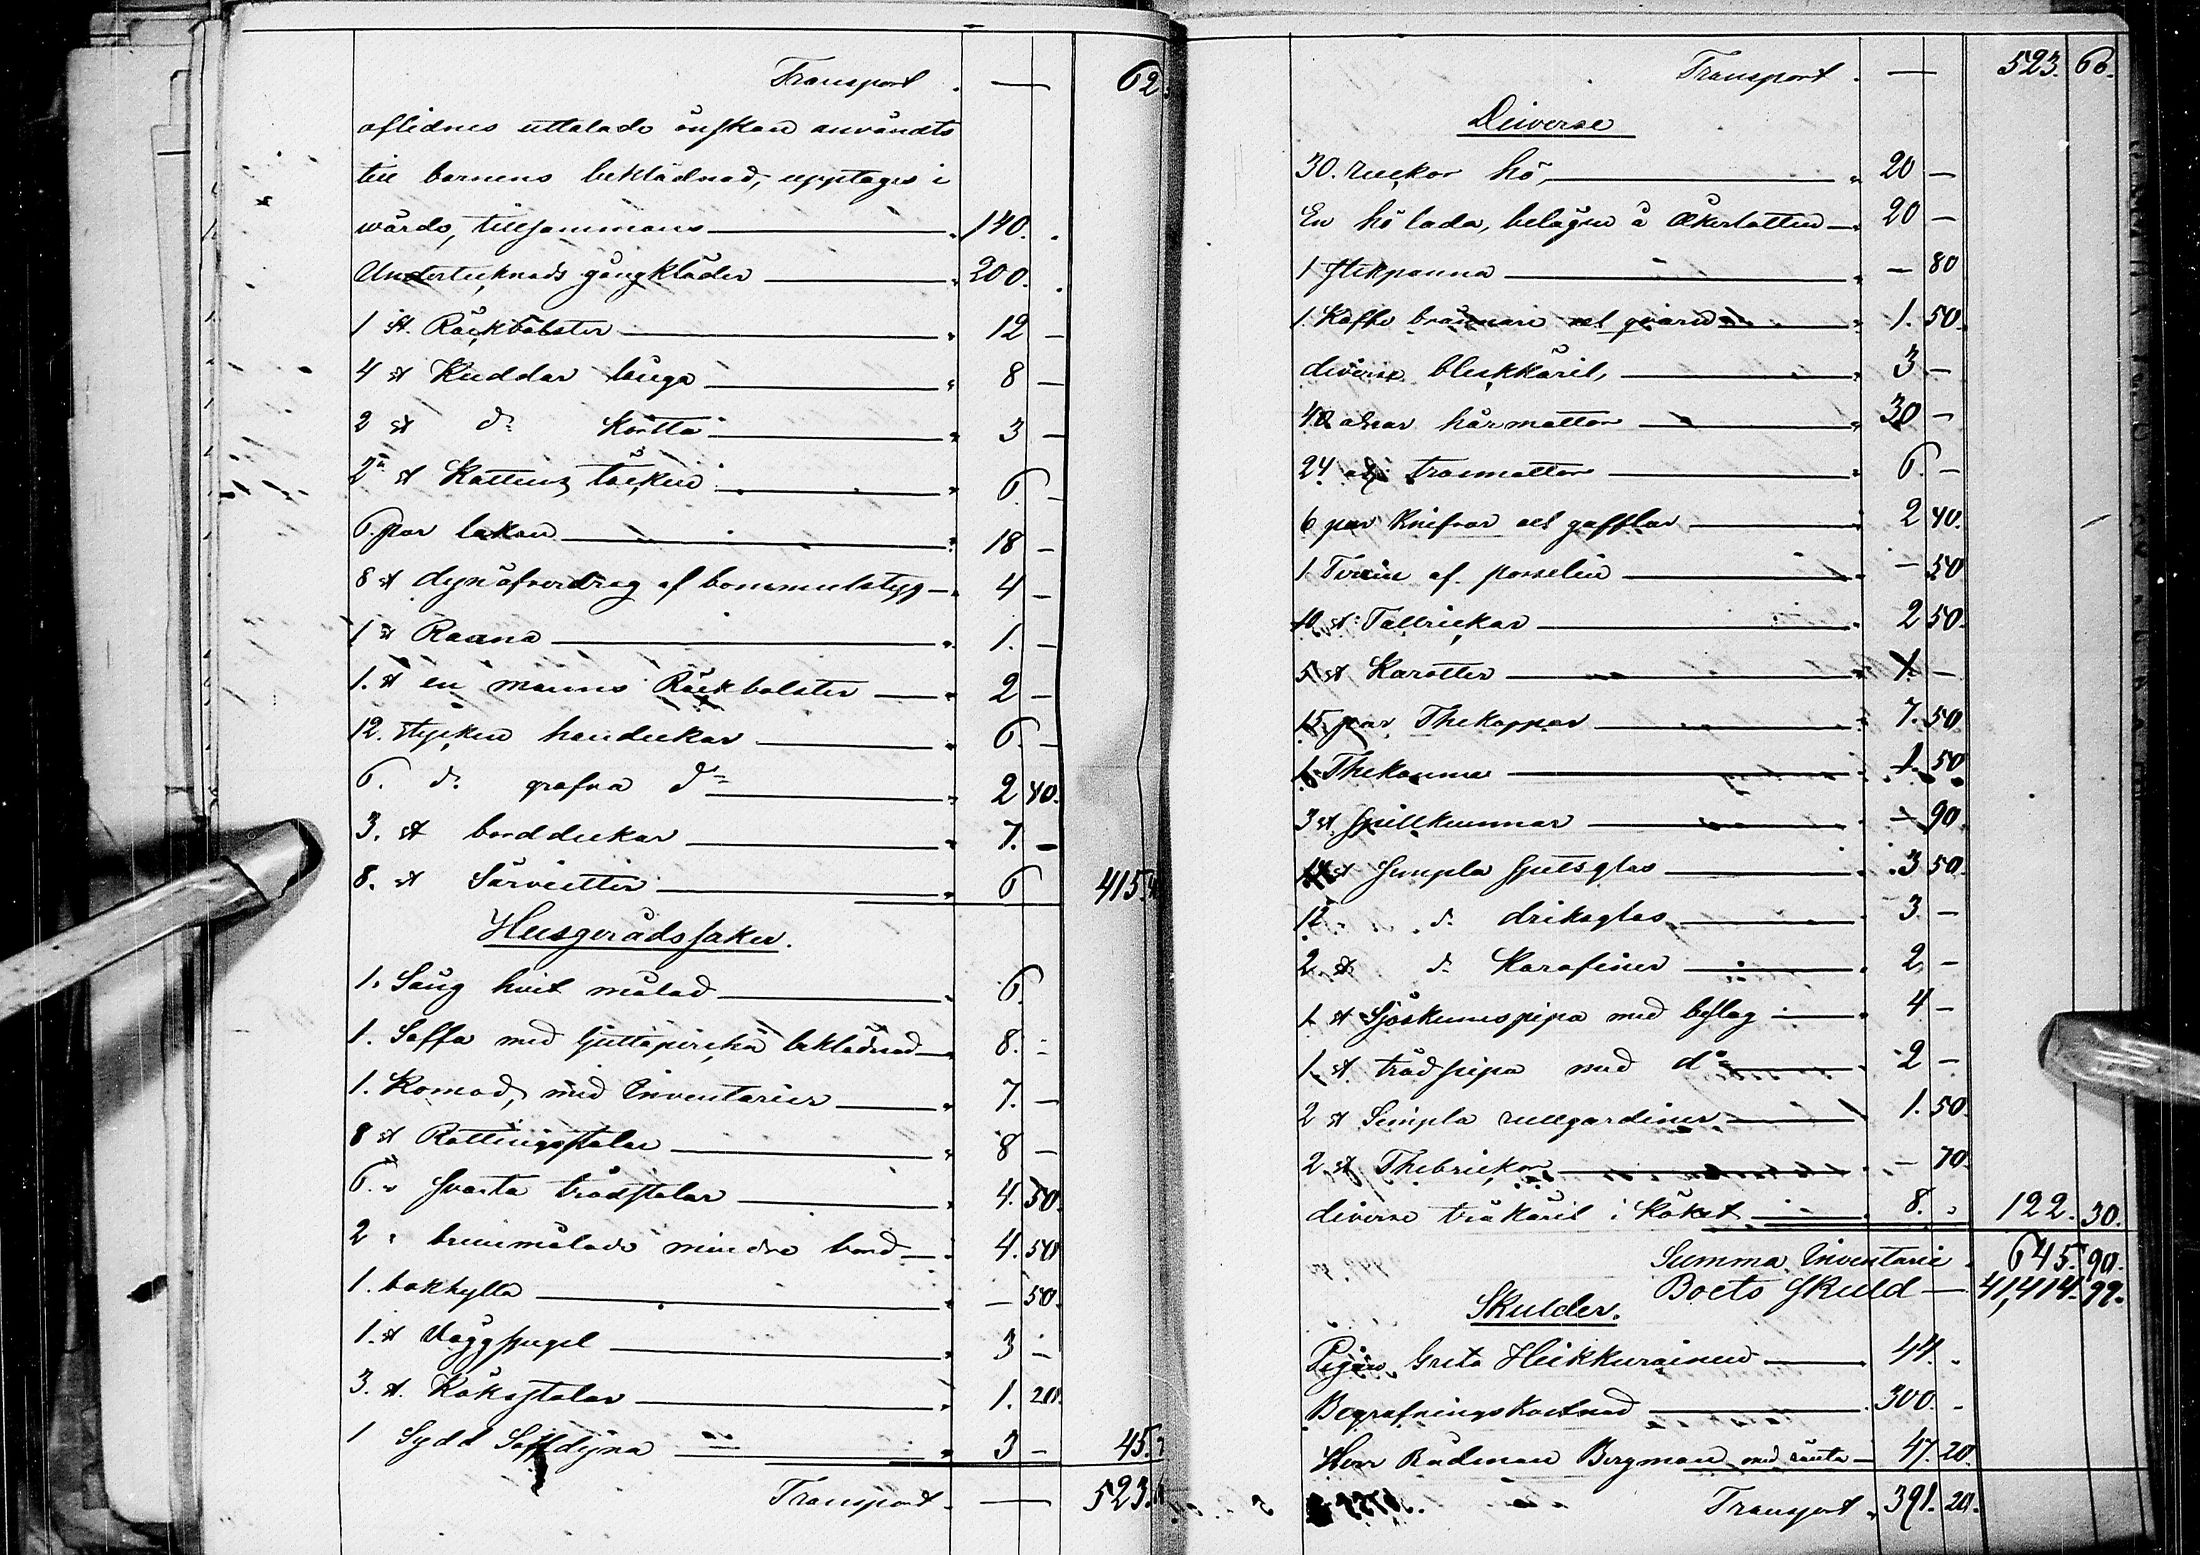 Transport . — 62.
aflidnes uttalade önskan användts
till barnens beklädnad, upptages i
wärde, tillsammans — 140.
Undertecknads gångkläder — 200.
1 st. Räckbolster — 12 —
4 st Kuddar långa — 8 —
2 st d:o Kortta — 3 —
2 st Kattuns täcken — 6. —
6. par lakan — 18 —
8 st dynöfverdrag af bommulstyg — 4 —
1 st Raana — 1. —
1. st en manns Räckbolster — 2 —
12. stycken handukar — 6. —
6. d:o grofva d:o — 2 40.
3. st borddukar — 7. —
8. st Särvietter — 6 415.
Husgerådssaker.
1. Säng hvit målad — 6.
1. Soffa med Guttaperka beklädnad — 8. -
1. Komod, med Inventarier — 7. —
8 st Rottingsstolar — 8 —
6. " svarta trädstolar — 4. 50.
2 " brunmålade mindre bord — 4. 50
1. bokhylla — — 50.
1. st Väggspegel — 3 —
3. st. Köksstolar — 1. 20.
1 Sydd Soffdyna — 3 — 45.
Transport . — 523.
Transport . — 523. 60.
Deiverse
30. ruckor hö, — 20 —
En hö lada, belägen å Åkerlotten — 20 —
1 stekpanna — — 80
1. Kaffe brännare ock qvarn — 1. 50.
diverse bleckkäril, — 3 —
40 alnar hårmattor — 30 —
24 al trasmattor — 6. —
6 par Knifvar och gafflar — 2 40.
1 Terrin af porselin — — 50
10 st Tallrickar — 2 50.
5 st Karotter — 1. —
15 par Thekoppar — 7. 50
1 Thekanna — 1. 50
3 st spillkummar — — 90.
14 st Simpla spetsglas — 3 50.
12 d:o driksglas — 3 —
2 st d:o Karafiner — 2 —
1 st Sjöskumspipa med beslag — 4 —
1 st trädpipa med d:o — 2 —
2 st Simpla rullgardiner — 1. 50.
2 st Thebrickor — — 70.
diverse träkäril i Köket — 8. 122. 30.
Summa Inventarie . 645. 90.
Boets skuld — 41,414. 99.
Skulder.
Pigan Greta Heikkurainen — 44.
Begrafningskostnad — 300. -
Herr Rådman Bergman med ränta — 47. 20.
Transport . 391. 20.